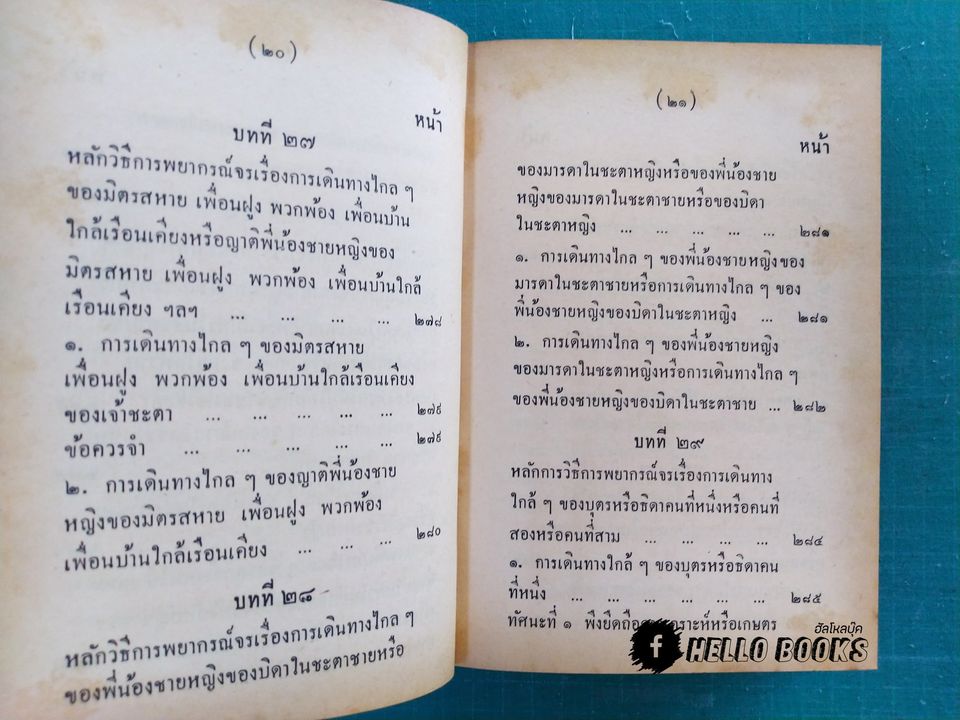 (๒๐)
หน้า
บทที่ ๒๗
หลักวิธีการพยากรณ์จรเรื่องการเดินทางไกล ๆ
ของมิตรสหาย เพื่อนฝูง พวกพ้อง เพื่อนบ้าน
ใกล้เรือนเคียงหรือญาติพี่น้องชายหญิงของ
มิตรสหาย เพื่อนฝูง พวกพ้อง เพื่อนบ้านใกล้
เรือนเคียง ฯลฯ ... ... ... ... ๒๗๘
๑. การเดินทางไกล ๆ ของมิตรสหาย
เพื่อนฝูง พวกพ้อง เพื่อนบ้านใกล้เรือนเคียง
ของเจ้าชะตา ... ... ... ... ... ๒๗๙
ข้อควรจำ ... ... ... ... ... ๒๗๙
๒. การเดินทางไกล ๆ ของญาติพี่น้องชาย
หญิงของมิตรสหาย เพื่อนฝูง พวกพ้อง
เพื่อนบ้านใกล้เรือนเคียง ... ... ... ๒๘๐
บทที่ ๒๘
หลักวิธีการพยากรณ์จรเรื่องการเดินทางไกล ๆ
ของพี่น้องชายหญิงของบิดาในชะตาชายหรือ
(๒๑)
หน้า
ของมารดาในชะตาหญิงหรือของพี่น้องชาย
หญิงของมารดาในชะตาชายหรือของบิดา
ในชะตาหญิง ... ... ... ... ... ๒๘๑
๑. การเดินทางไกล ๆ ของพี่น้องชายหญิงของ
มารดาในชะตาชายหรือการเดินทางไกล ๆ ของ
พี่น้องชายหญิงของบิดาในชะตาหญิง ... ๒๘๑
๒. การเดินทางไกล ๆ ของพี่น้องชายหญิง
ของมารดาในชะตาหญิงหรือการเดินทางไกล ๆ
ของพี่น้องชายหญิงของบิดาในชะตาชาย ... ๒๘๒
บทที่ ๒๙
หลักการวิธีการพยากรณ์จรเรื่องการเดินทาง
ใกล้ ๆ ของบุตรหรือธิดาคนที่หนึ่งหรือคนที่
สองหรือคนที่สาม ... ... ... ... ๒๘๔
๑. การเดินทางใกล้ ๆ ของบุตรหรือธิดาคน
ที่หนึ่ง ... ... ... ... ... ... ๒๘๕
ทัศนะที่ ๑ พึงยึดถือ เคราะห์หรือเกษตร
ฮัลโหลบุ๊ค
f HELLO BOOKS